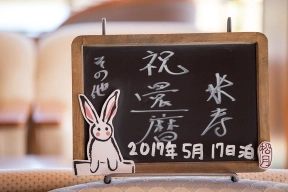 祝
還暦
米寿
その他
2017年5月17日泊
松月